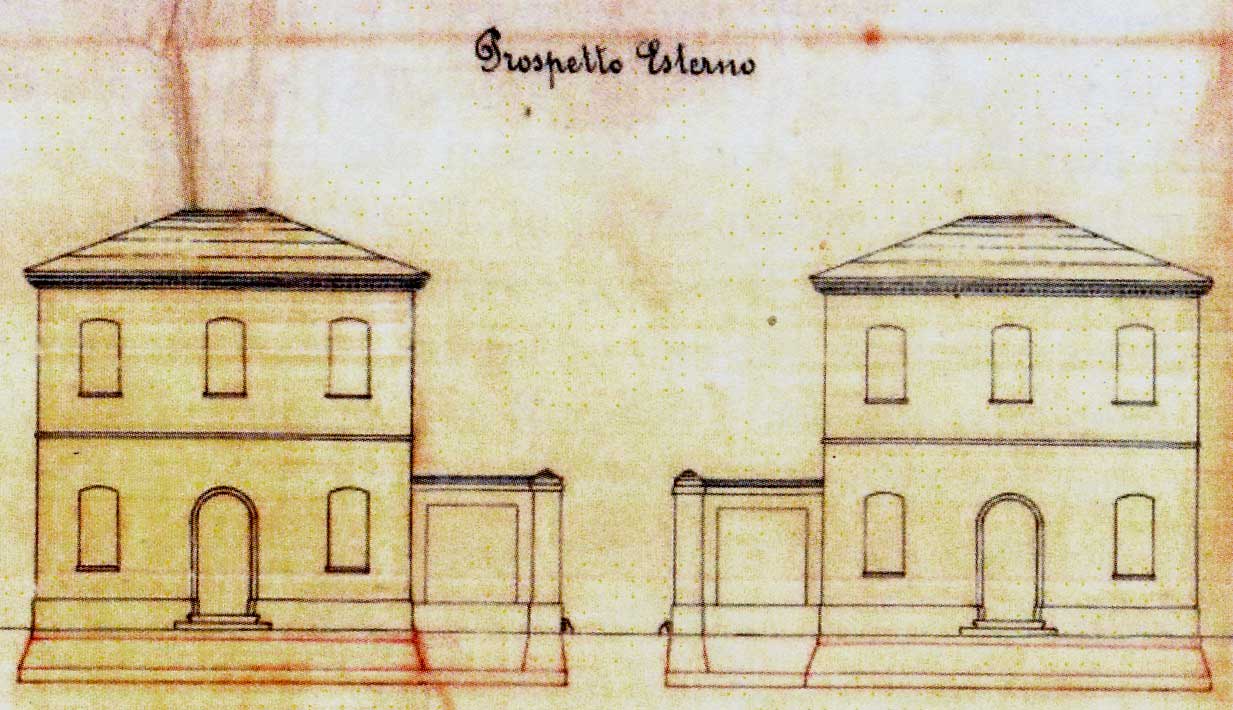 Prospetto Esterno